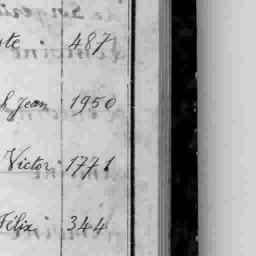 ste. 487
h Jean 1950
Victor 1771
Félix 344